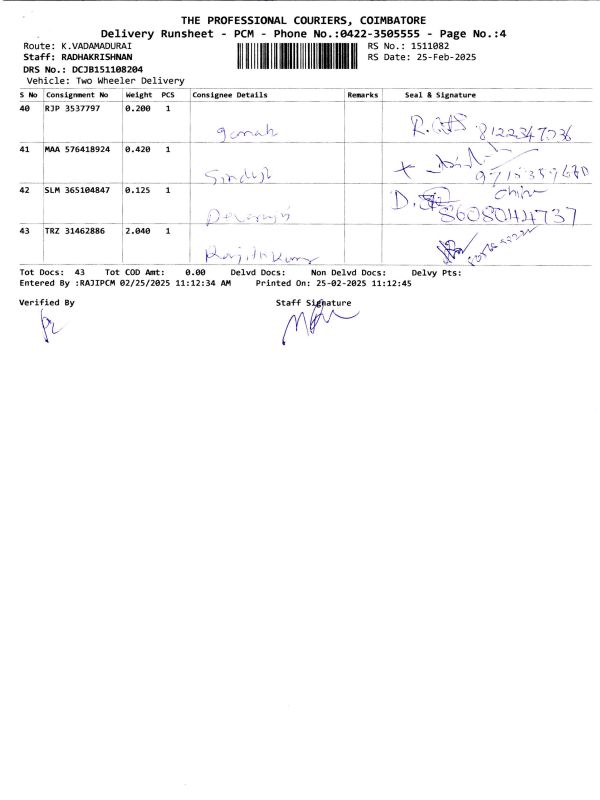 THE PROFESSIONAL COURIERS, COIMBATORE
Delivery Runsheet - PCM - Phone No.:0422-3505555 - Page No.:4
Route: K.VADAMADURAI RS No.: 1511082
Staff: RADHAKRISHNAN RS Date: 25-Feb-2025
DRS No.: DCJB151108204
Vehicle: Two Wheeler Delivery
S No Consignment No Weight PCS Consignee Details Remarks Seal & Signature
40 RJP 3537797 0.200 1
8122347036
41 MAA 576418924 0.420 1
42 SLM 365104847 0.125 1
8608044737
43 TRZ 31462886 2.040 1
Tot Docs: 43 Tot COD Amt: 0.00 Delvd Docs: Non Delvd Docs: Delvy Pts:
Entered By :RAJIPCM 02/25/2025 11:12:34 AM Printed On: 25-02-2025 11:12:45
Verified By Staff Signature